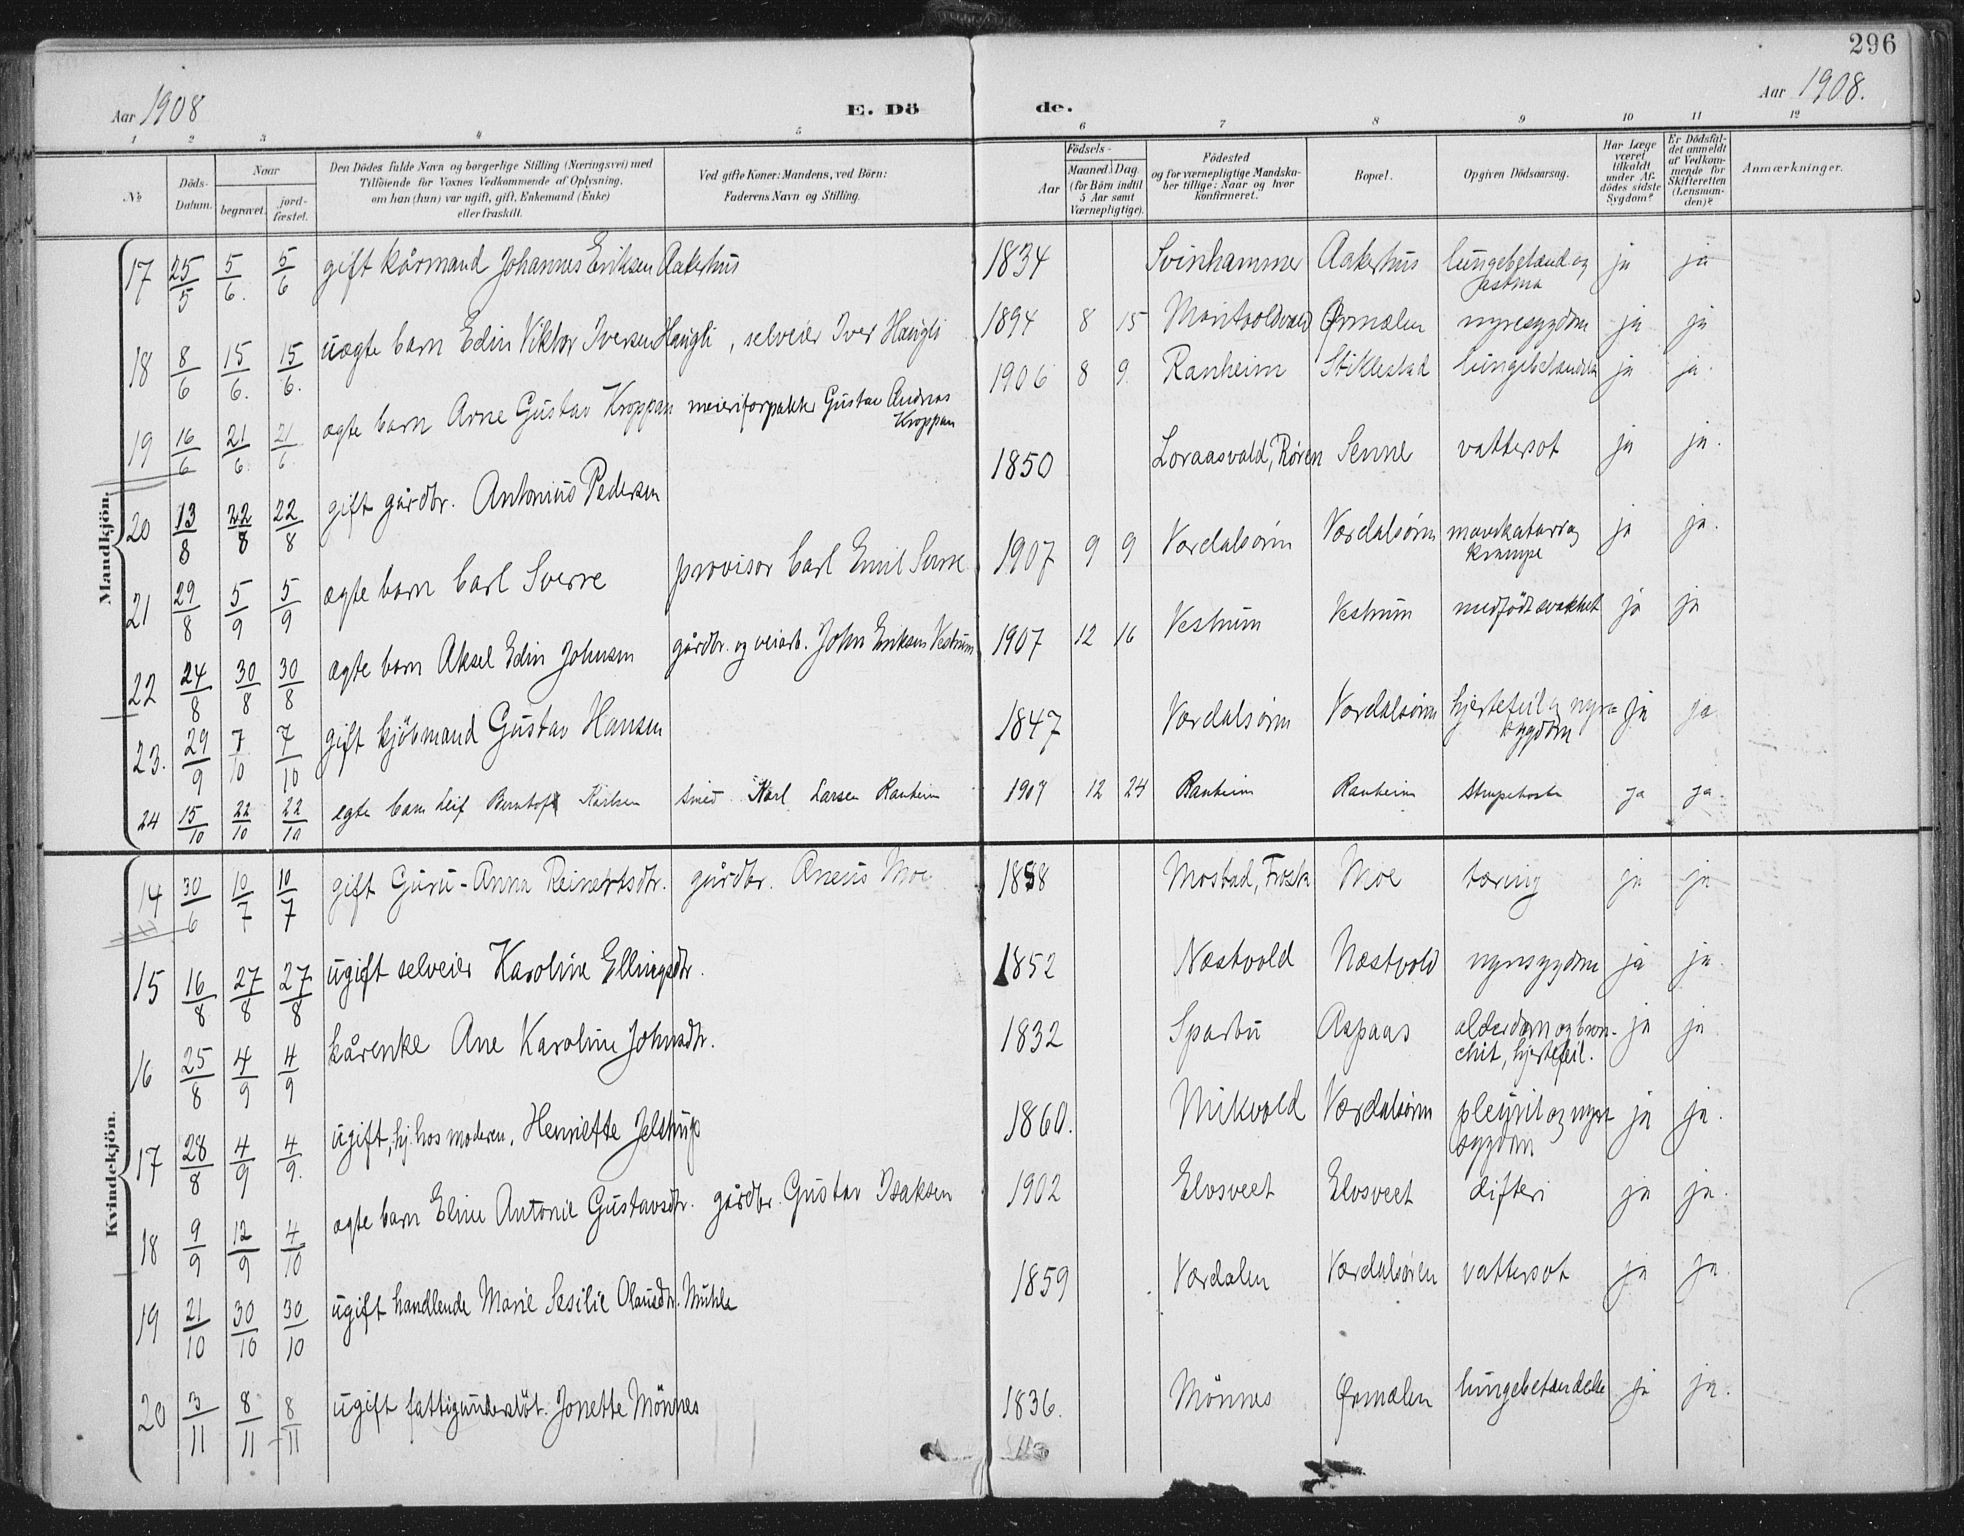 296
Aar 1908
E. Dö
de.
Aar 1908.
1 2 3 4 5 6 7 8 9 10 11 12
No
Döds-
Datum.
Naar
begravet.
jord-
fæstet.
Den Dödes fulde Navn og borgerlige Stilling (Næringsvei) med
Tilföiende for Voxnes Vedkommende af Oplysning,
om han (hun) var ugift, gift, Enkemand (Enke)
eller fraskilt.
Ved gifte Koner: Mandens, ved Börn:
Faderens Navn og Stilling.
Aar
Födsels-
Maaned. Dag
(for Börn indtil
5 Aar samt
Værnepligtige).
Födested
og for værnepligtige Mandska-
ber tillige: Naar og hvor
konfirmeret.
Bopæl.
Opgiven Dödsaarsag.
Har Læge
været
tilkaldt
under Af-
dödes sidste
Sygdom?
Er Dödsfal-
det anmeldt
af Vedkom-
mende for
Skifteretten
(Lensman-
den)?
Anmærkninger.
Mandkjön.
17 25/5 5/6. 5/6 gift kårmand Johannes Eriksen Aakerhus 1834 Svinhammer Aakerhus lungebetænd og ja ja
astma
18 8/6 15/6. 15/6. uægte barn Edin Viktor Iversen Haugli, selveier Iver Haugli 1894 8 15 Maritvoldvald Ørmælen nyresygdom ja ja
19 16/6 21/6. 21/6 ægte barn Arne Gustav Kroppan meieriforpakter Gustav Andreas 1906 8 9. Ranheim Stiklestad lungebetændelse ja ja.
Kroppan
20 13/8 22/8 22/8 gift gårdbr. Antonius Pedersen 1850 Loraasvald, Røren Senne vattersot ja ja.
21 29/8 5/9 5/9 ægte barn Carl Sverre provisor Carl Emil 1907 9 9 Værdalsøren Værdalsøren mavekatarr og ja ja.
krampe
22 24/8 30/8 30/8 ægte barn Aksel Edin Johnsen gårdbr. og veiarb. John Eriksen Vestrum 1907 12 16 Vestrum Vestrum medfødt svakhet ja ja
23. 29/9 7/10 7/10 gift kjöbmand Gustav Hansen 1847 Værdalsøren Værdalsøren hjertefeil og nyre= ja ja
sygdom
24 15/10 22/10 22/10 egte barn Leif Karlsen Smed Karl Larsen Ranheim 1907 12 24 Ranheim Ranheim Strupehoste ja ja.
Kvindekjön.
14 30/6 10/7 10/7 gift Guru-Anna Reinertsdtr. gårdbr. Aneus Moe 1858 Mostad, Frosta Moe tæring ja ja
15 16/8 27/8 27/8 ugift selveier Karoline Ellingsdtr. 1852 Næstvold Næstvold nyresygdom ja ja.
16 25/8 4/9 4/9 kårenke Ane Karoline Johnsdtr. 1832 Sparbu Aspaas alderdom og bron- ja ja
chit, hjertefeil.
17 28/8 4/9 4/9. ugift, hj. hos moderen, Henriette Jelstrup 1860. Mikvold Værdalsøren pleurit og nyre ja ja.
sygdom
18 9/9 12/9 4/10 ægte barn Eline Antonie Gustavsdtr. gårdbr. Gustav Isaksen 1902 Elvsveet Elvsveet difteri ja ja.
19 21/10 30/10 30/10 ugift handlende Marie Sesilie Olausdtr. Muhle 1859 Værdalen Værdalsøren vattersot ja ja.
20 3/11 8/11 8/11 ugift fattigunderstöt. Jonette Mönnes 1836. Mönnes Ørmælen lungebetændelse ja ja.